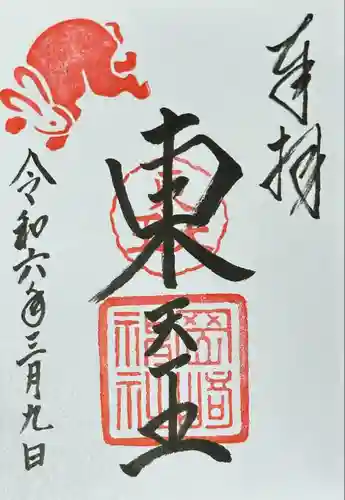 奉拝
東天王
岡崎
神社
令和六年三月九日